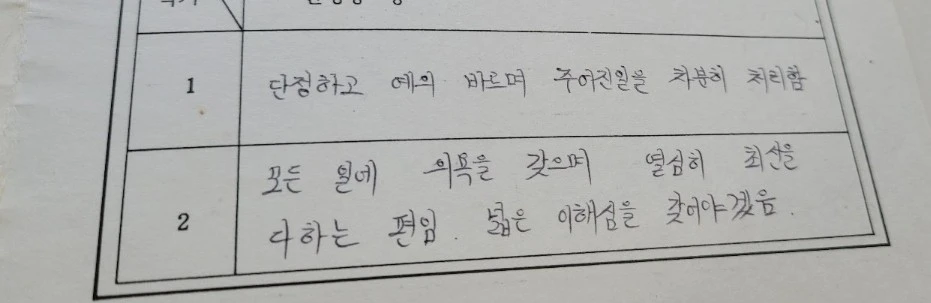 1
단정하고 예의 바르며 주어진일을 차분히 처리함
2
모든 일에 의욕을 갖으며 열심히 최선을
다하는 편임. 넓은 이해심을 갖어야겠음.